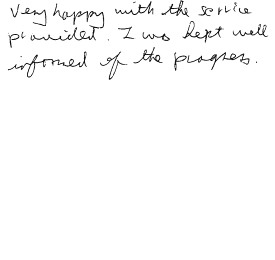 Very happy with the service
provided. I was kept well
informed of the progress.